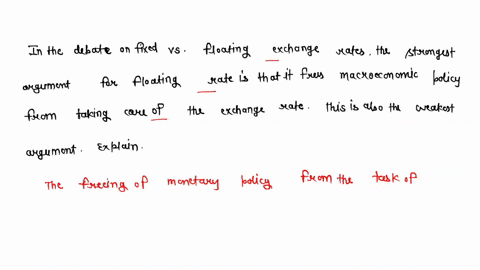 In the debate on fixed vs. floating exchange rates, the strongest
argument for floating rate is that it frees macroeconomic policy
from taking care of the exchange rate. This is also the weakest
argument. Explain.
The freeing of monetary policy from the task of